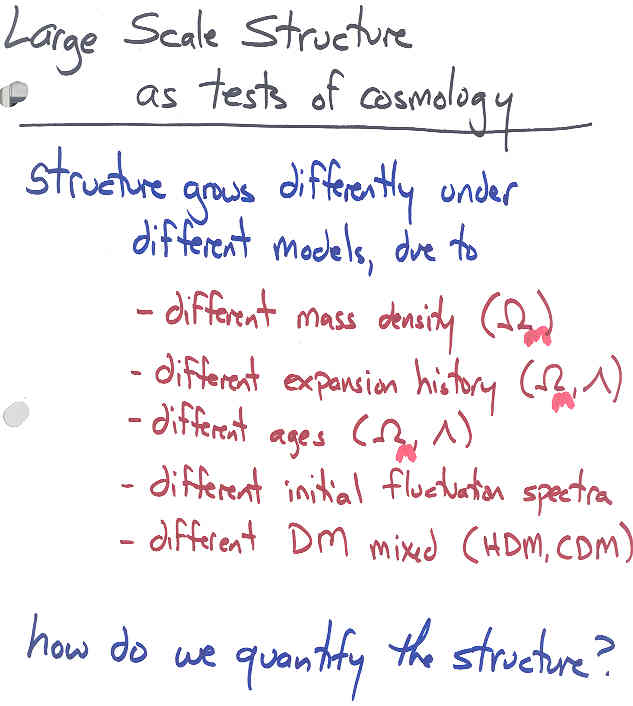 Large Scale Structure
as tests of cosmology
Structure grows differently under
different models, due to
- different mass density (Ωₘ)
- different expansion history (Ωₘ, Λ)
- different ages (Ωₘ, Λ)
- different initial fluctuation spectra
- different DM mixed (HDM, CDM)
how do we quantify the structure?